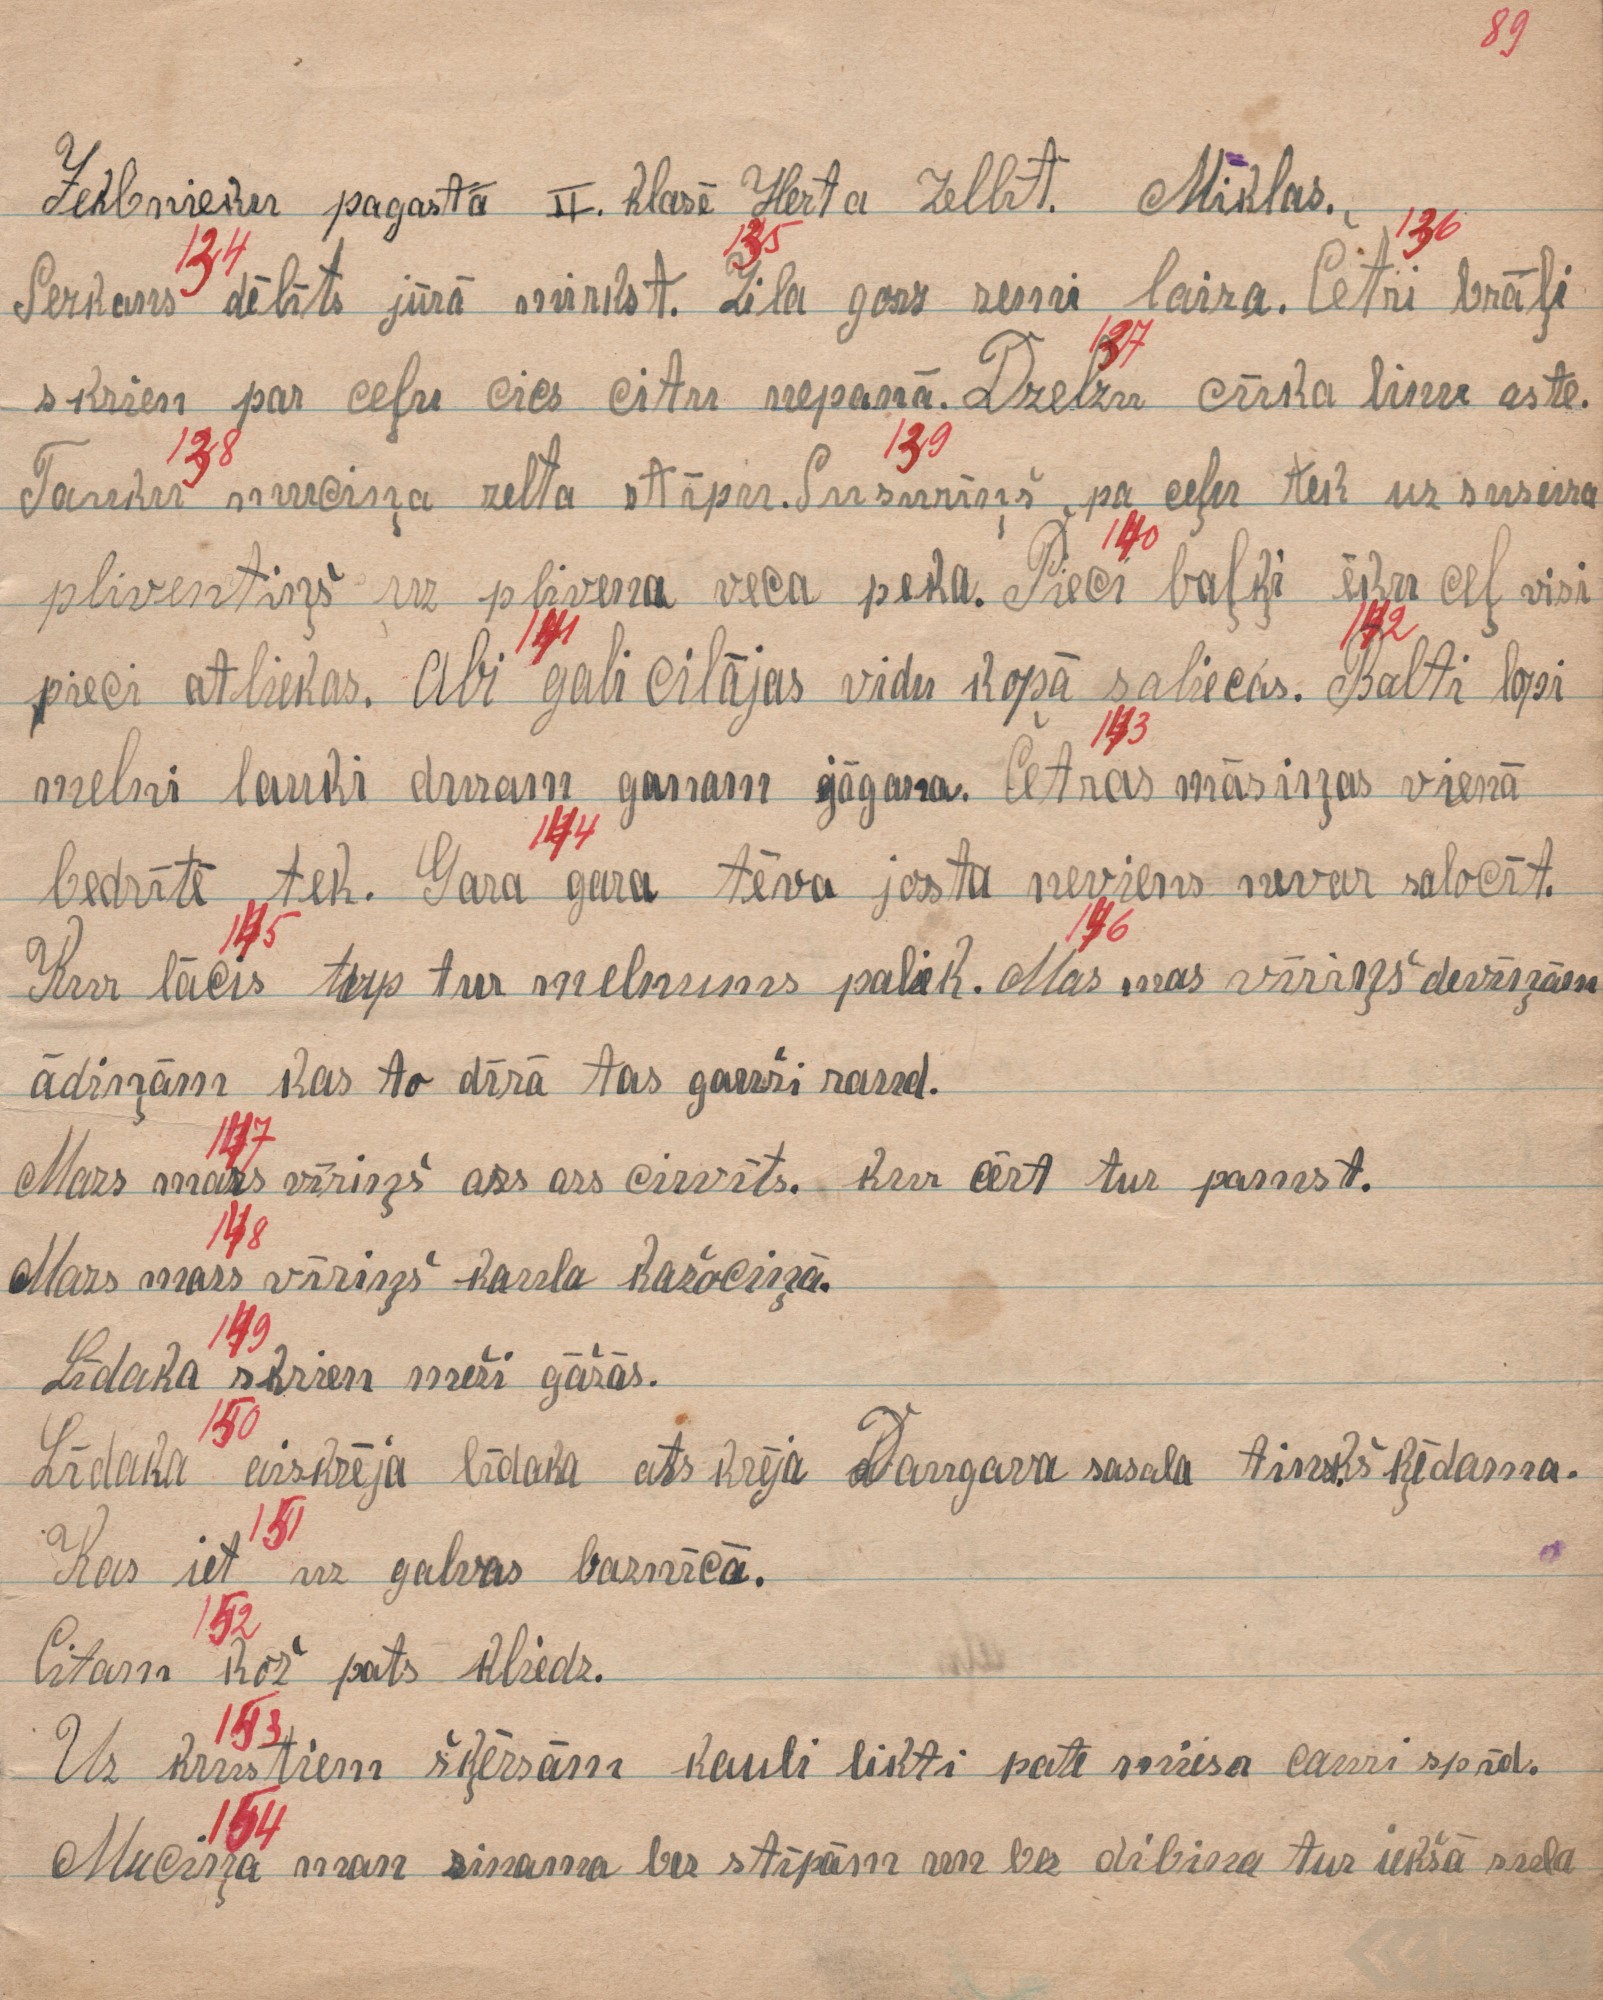 89
Jēkbnieku pagastā II. klasē Herta Zellīt. Mīklas.
134 135 136
Serkans dēlīts jūrā mirkst. Zila gozs zemi laiza. Četri brāļi
137
skrien par ceļu cies citu nepanā. Dzelzu cūka linu aste.
138 139
Tauku muciņa zelta stīpu. Susuriņš pa ceļu tek uz susura
140
pliventiņš uz plivena veca peka. Pieci baļķi ēku ceļ visi
141 142
pieci atliekas. Abi gali cilājas vidu kopā saliecas. Balti lopi
143
melni lauki duram ganam jāgana. Četras māsiņas vienā
144
bedrītē tek. Gara gara tēva josta neviens nevar salocīt.
145 146
Kur lācis tup tur melnums paliek. Mas mas vīriņš deviņām
ādiņām kas to dīrā tas gauži raud.
147
Mazs mazs vīriņš ass ass cirvīts. kur cērt tur pamst.
148
Mazs mazs vīriņš kaula kažociņā.
149
Līdaka skrien meži gāžās.
150
Līdaka aiskrēja līdaka ats krēja Daugava sasala tinkšķēdama.
151
Kas iet uz galvas baznīcā.
152
Citam kož pats kliedz.
153
Uz krustiem šķērsām kauli likti pate miesa cauri spīd.
154
Muciņa man zinama bez stīpām un bez dibina tur iekšā sula